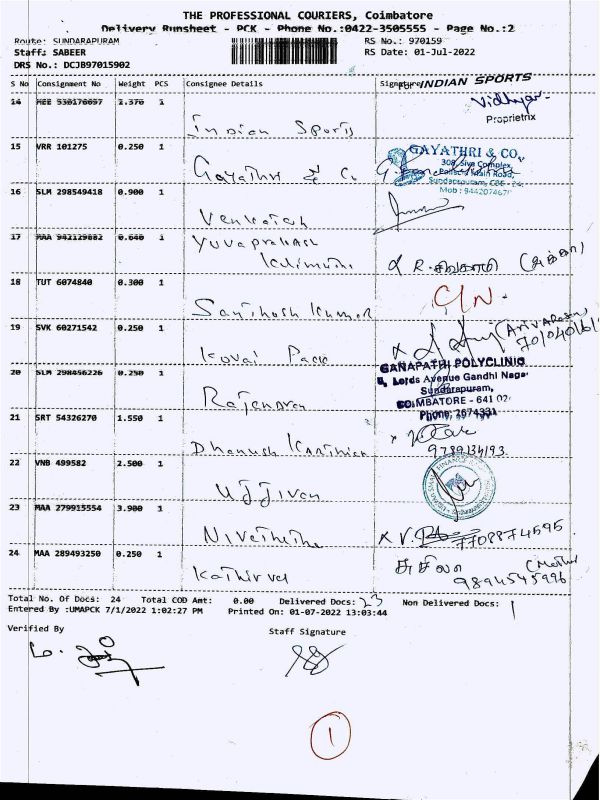 THE PROFESSIONAL COURIERS, Coimbatore
Delivery Runsheet - PCK - Phone No.:0422-3505555 - Page No.:2
Route: SUNDARAPURAM RS No.: 970159
Staff: SABEER RS Date: 01-Jul-2022
DRS No.: DCJB97015902
S No Consignment No Weight PCS Consignee Details Signature
For INDIAN SPORTS
14 1.370 1 Indian Sports
Proprietrix
15 VRR 101275 0.250 1 Gayathri & Co
GAYATHRI & CO,
308, Siva Complex,
Main Road,
Sundarapuram, CBE - 24.
16 SLM 298549418 0.900 1 Venkatesh
17 MAA 942129882 0.640 1 Yuvaprakash
18 TUT 6074840 0.300 1 Santhosh Kumar C/N.
19 SVK 60271542 0.250 1 Kovai Pack
20 SLM 298456226 0.250 1 Rajendran
GANAPATHI POLYCLINIC
Lords Avenue Gandhi Nagar
Sundarapuram,
COIMBATORE - 641 02
Phone: 2674331
21 SRT 54326270 1.550 1 Dhanush
9789134193
22 VNB 499582 2.500 1 Ujjivan
23 MAA 279915554 3.900 1 Nivethitha 7708874595
24 MAA 289493250 0.250 1 Kathirvel
9894545996
Total No. Of Docs: 24 Total COD Amt: 0.00 Delivered Docs: 23 Non Delivered Docs: 1
Entered By :UMAPCK 7/1/2022 1:02:27 PM Printed On: 01-07-2022 13:03:44
Verified By Staff Signature
1